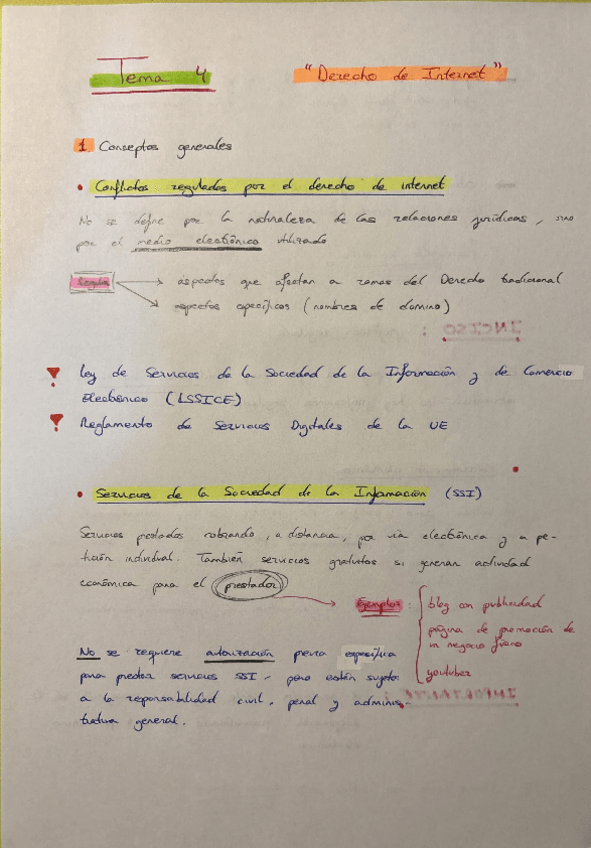 Tema 4 "Derecho de Internet"
1 Conceptos generales
• Conflictos regulados por el derecho de internet
No se define por la naturaleza de las relaciones jurídicas, sino
por el medio electrónico utilizado
Regula → aspectos que afectan a ramas del Derecho tradicional
→ aspectos específicos (nombres de dominio)
INCISO :
Ley de Servicios de la Sociedad de la Información y de Comercio
Electrónico (LSSICE)
Reglamento de Servicios Digitales de la UE
• Servicios de la Sociedad de la Información (SSI)
Servicios prestados cobrando, a distancia, por vía electrónica y a pe-
tición individual. También servicios gratuitos si generan actividad
económica para el prestador
Ejemplos : blog con publicidad
página de promoción de
un negocio físico
youtuber
No se requiere autorización previa específica
para prestar servicios SSI, pero están sujetos
a la responsabilidad civil, penal y adminis-
trativa general.
IMPORTANTE